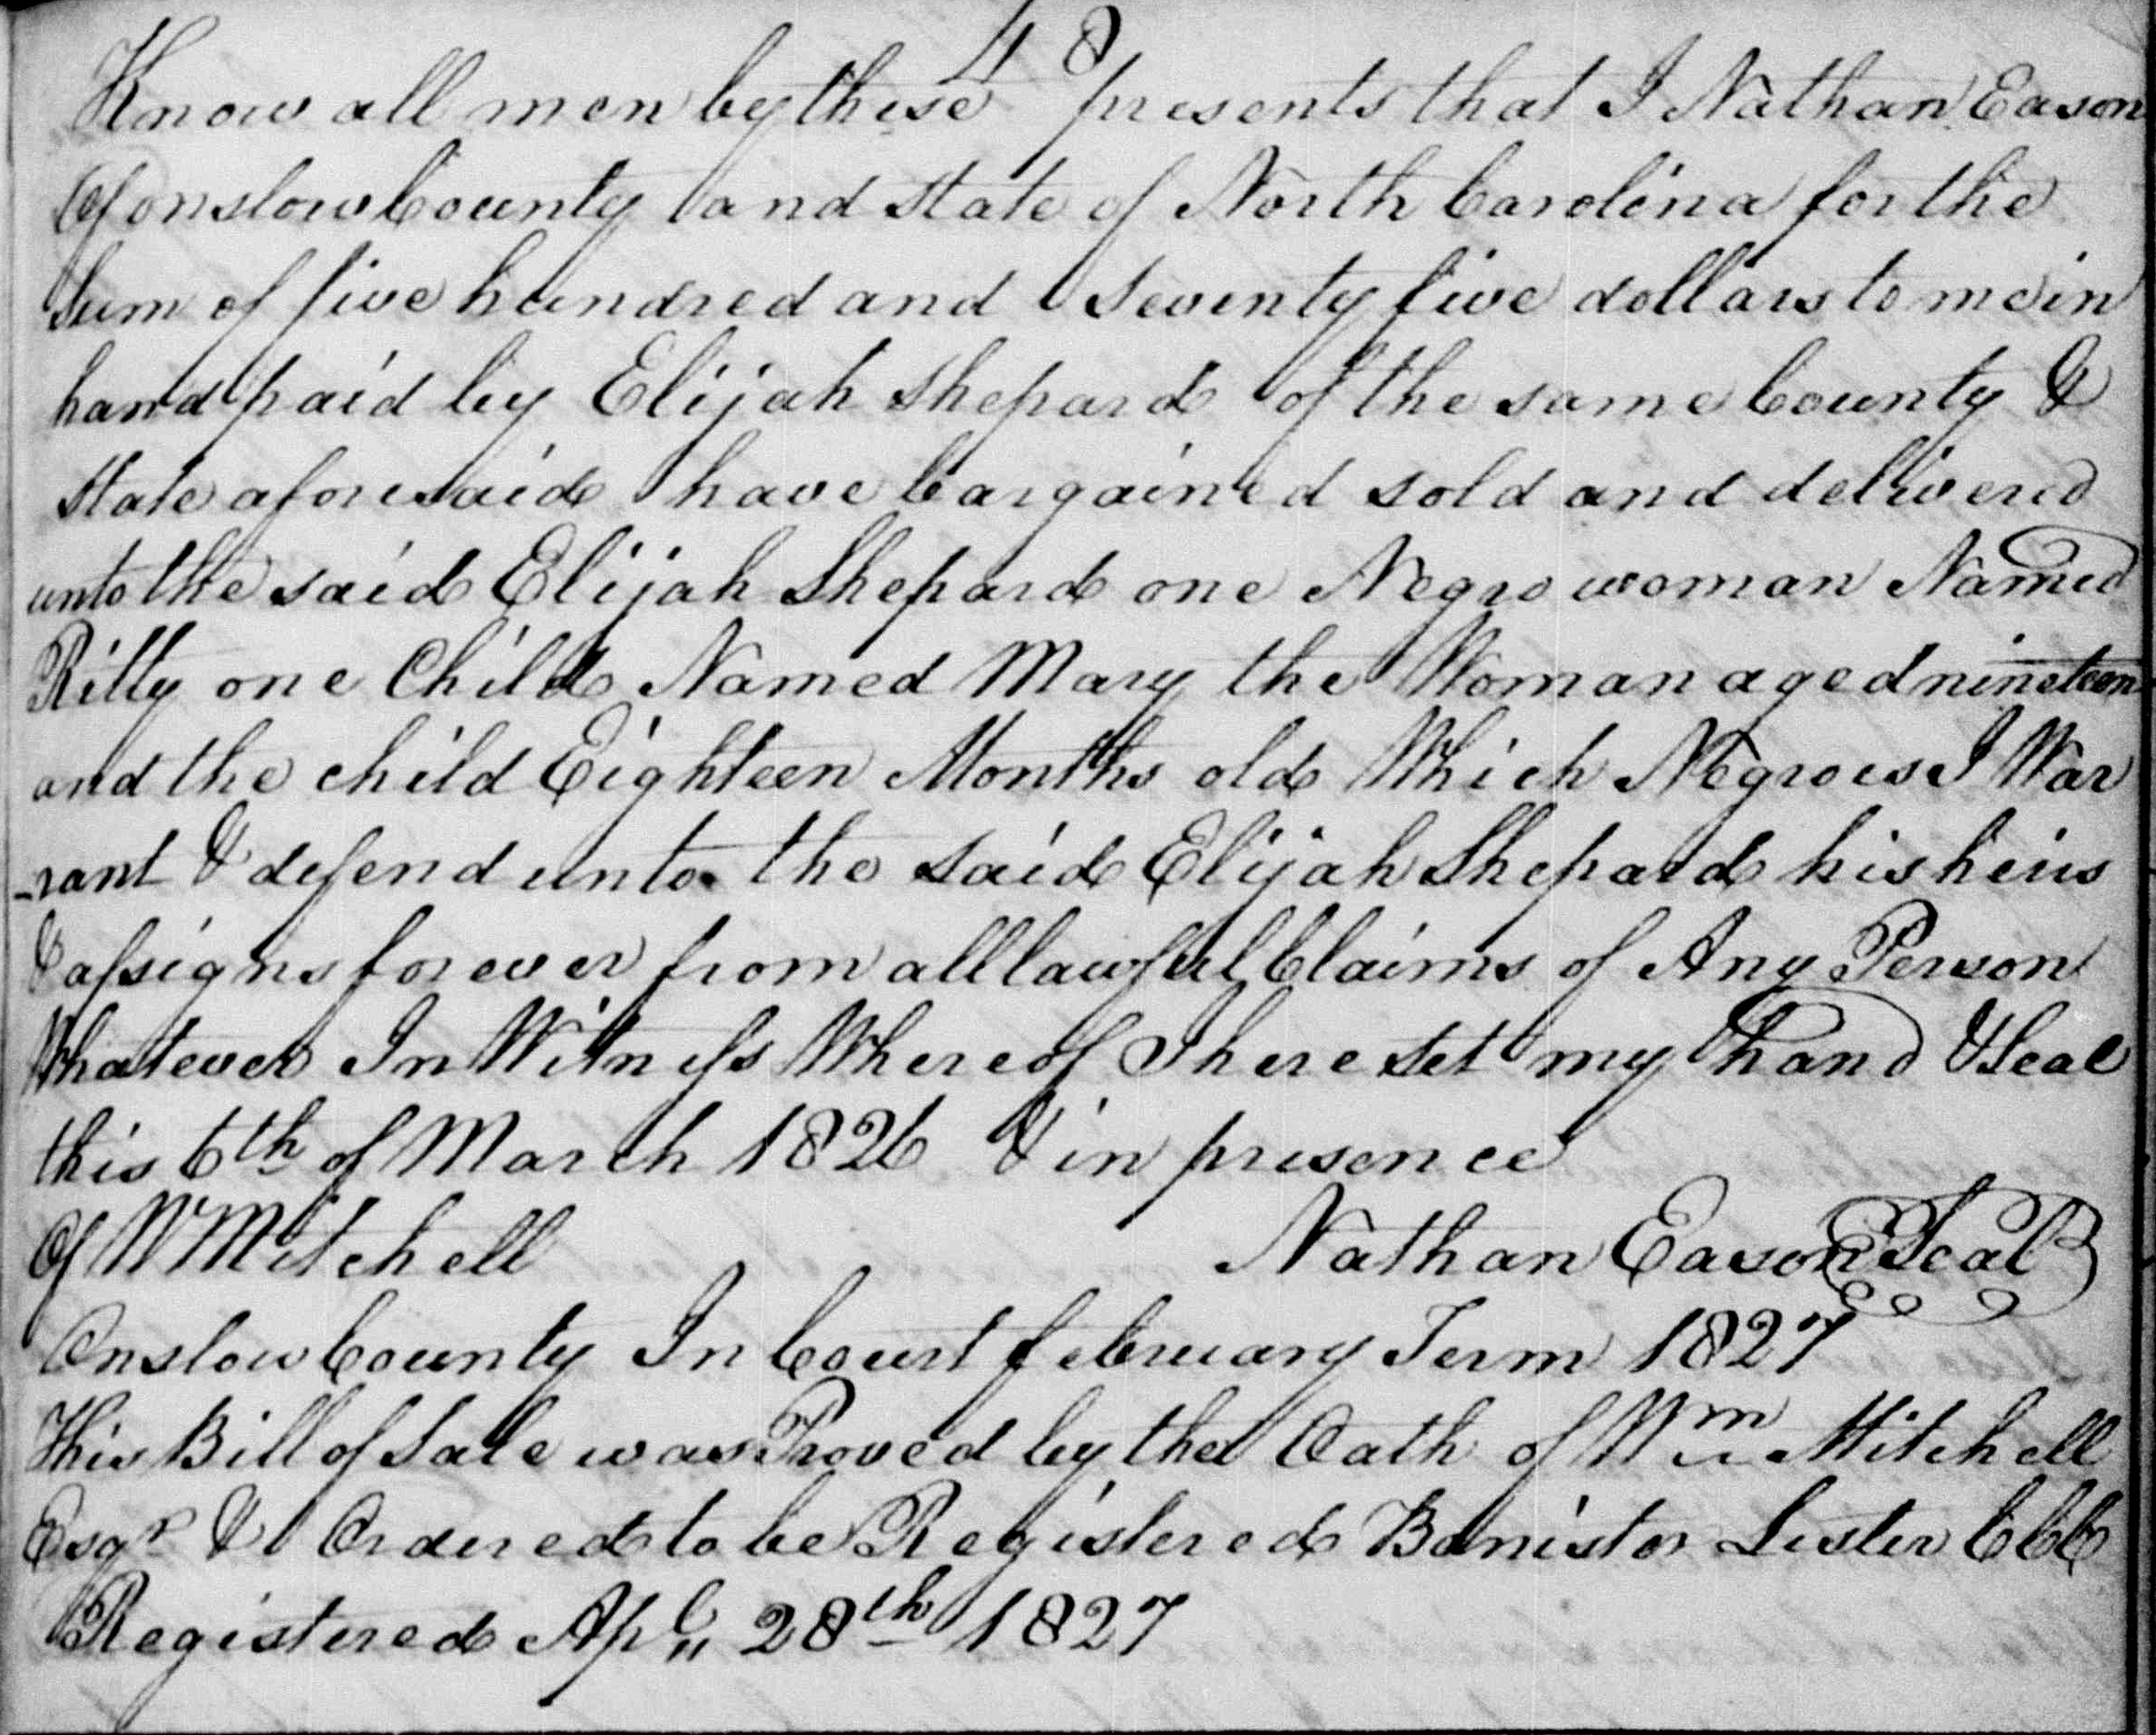 48
Know all men by these presents that I Nathan Eason
Of onslow County and State of North Carolina for the
Sum of five hundred and Seventy five dollars to me in
hand paid by Elijah Shepard of the same County &
State aforesaid have bargained sold and delivered
unto the said Elijah Shepard one Negro woman Named
Ritty one Child Named Mary the Woman aged nineteen
and the child Eighteen Months old Which Negroes I War
-rant & defend unto the said Elijah Shepard his heirs
& assigns for ever from all lawful Claims of Any Person
Whatever In Witness Whereof I here set my hand & Seal
this 6th of March 1826 & in presence
Of W Mitchell Nathan Eason Seal
Onslow County In Court february Term 1827
This Bill of Sale was Proved by the Oath of Wm Mitchell
Esqr & Ordered to be Registered Banister Lester CCC
Registered Apl 28th 1827